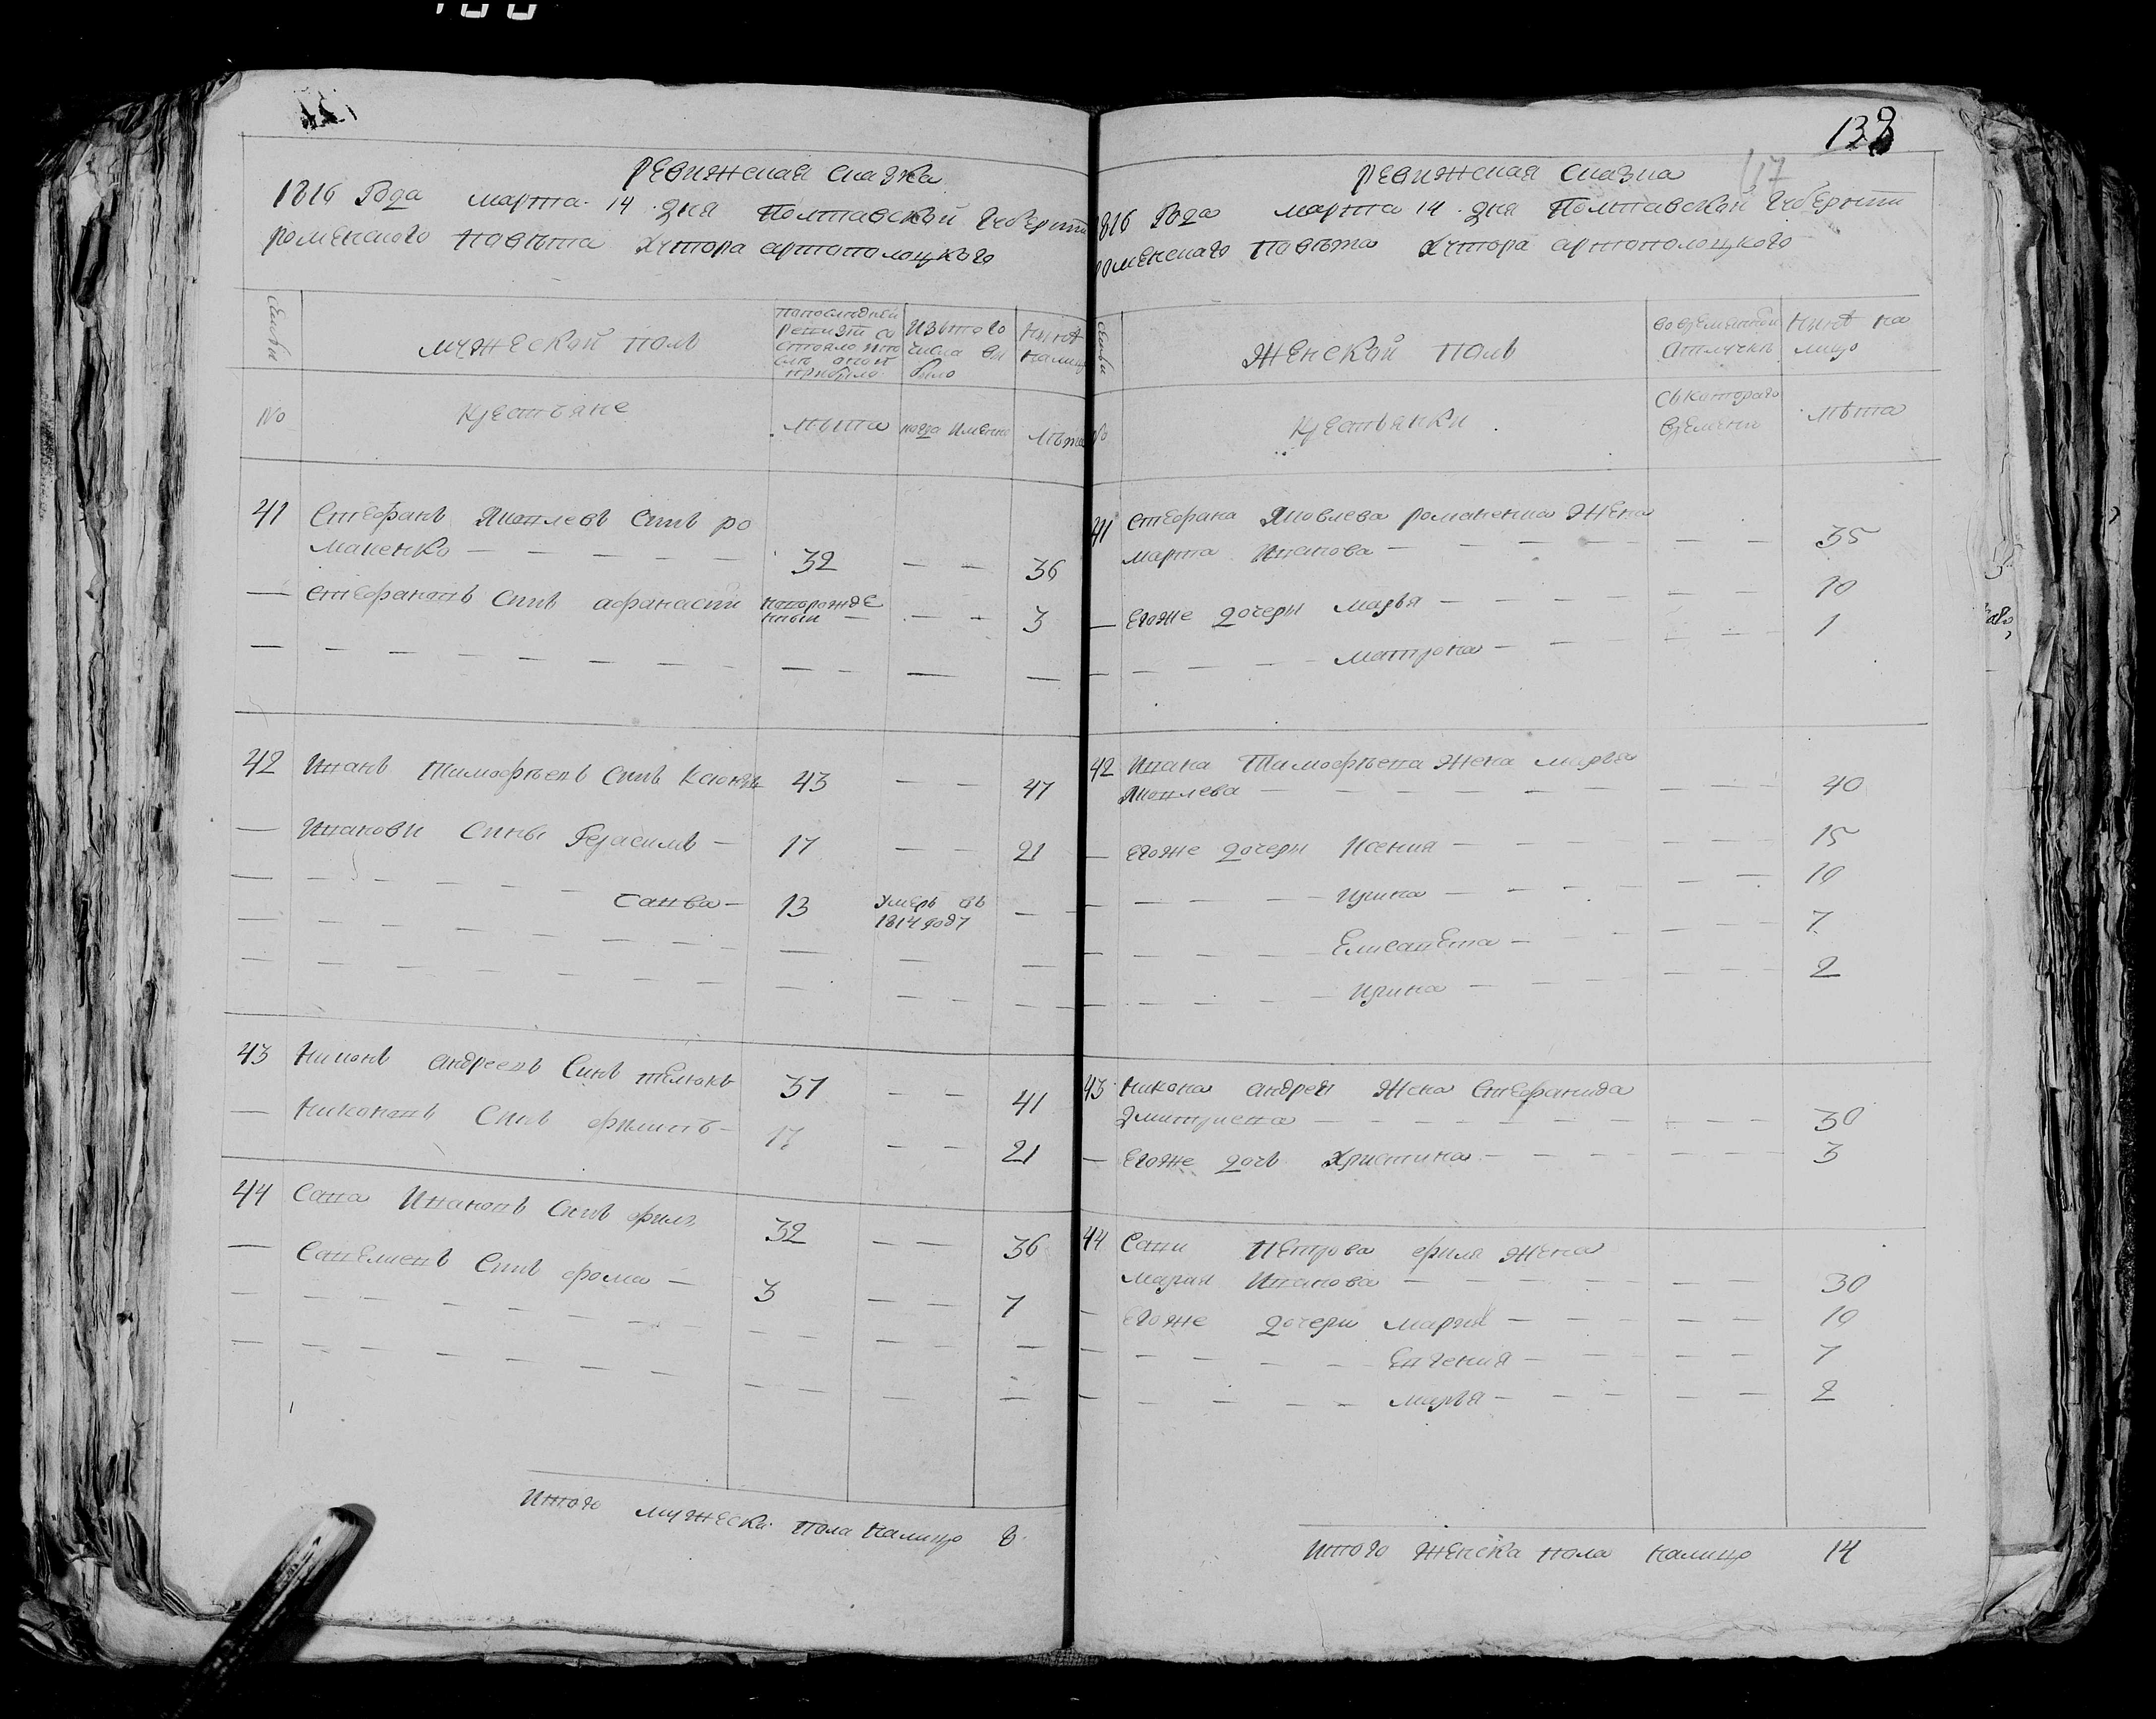 ревижская сказка
1816 Года марта 14 дня Полтавской Губернии
роменского повета хутора артополоцкого
семьи
мужеской пол
по последней ревизии состояло или после оной прибыло
из того числа выбыло
ныне налицо
№
крестьяне
лета
когда имянно
лета
41 Стефанъ Яковлевъ Синъ ро
маненко — — — — — 32 — — 36
— Стефановъ Синъ афанасии новорожде
нный — — — 3
42 Иванъ Тимофеевъ Синъ 43 — — 47
— Иванови Сины Герасимъ — 17 — — 21
— — — — Савва — 13 умеръ въ
1814 году —
43 Никонъ андреевъ Синъ 37 — — 41
— Никоновъ Синъ филипъ — 17 — — 21
44 Сава Ивановъ Синъ 32 — — 36
— Савелиевъ Синъ фома — 3 — — 7
Итого мужеска пола налицо 8
138
117
ревижская Сказка
1816 Года марта 14 дня Полтавской Губернии
роменскаго повета Хутора артополоцкого
семьи
Женской полъ
во временной отлучке
ныне на лицо
№
крестьянки
съ которого времени
лета
41 Стефана Яковлева романенка Жена
марта Иванова — — — — 35
— Егоже дочеры марья — — — 10
— — — — матрона — — — 1
42 Ивана Тимофеева Жена марья
Яковлева — — — — 40
— Егоже дочеры Ксения — — — 15
— — — — Ирина — — — 10
— — — — Елисавета — — — 7
— — — — Ирина — — — 2
43 Никона андрея Жена Стефанида
Дмитриева — — — — 30
— Егоже дочь Христина — — — 3
44 Сави Петрова филя Жена
Мария Иванова — — — 30
— Егоже дочери Мария — — — 10
— — — — Евгения — — — 7
— — — — марья — — — 2
Итого Женска пола налицо 14